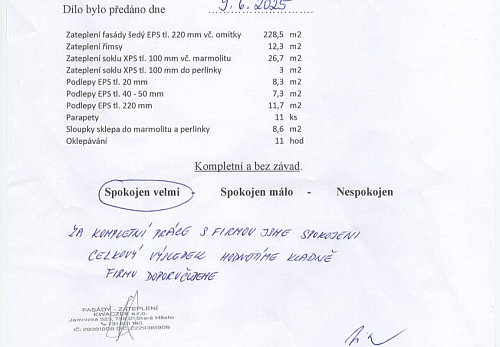 Dílo bylo předáno dne 9.6.2025
Zateplení fasády šedý EPS tl. 220 mm vč. omítky 228,5 m2
Zateplení římsy 12,3 m2
Zateplení soklu XPS tl. 100 mm vč. marmolitu 26,7 m2
Zateplení soklu XPS tl. 100 mm do perlinky 3 m2
Podlepy EPS tl. 20 mm 8,3 m2
Podlepy EPS tl. 40 - 50 mm 7,3 m2
Podlepy EPS tl. 220 mm 11,7 m2
Parapety 11 ks
Sloupky sklepa do marmolitu a perlinky 8,6 m2
Oklepávání 11 hod
Kompletní a bez závad.
Spokojen velmi - Spokojen málo - Nespokojen
ZA KOMPLETNÍ PRÁCE S FIRMOU JSME SPOKOJENI
CELKOVÝ VÝSLEDEK HODNOTÍME KLADNĚ
FIRMU DOPORUČUJEME
FASÁDY - ZATEPLENÍ
KWACZEK s.r.o.
Jamnická 523, 738 01 Staré Město